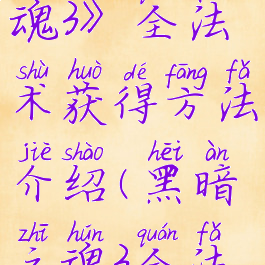 魂3》全法
shù huò dé fāng fǎ
术获得方法
jiè shào hēi àn
介绍(黑暗
zhī hún quán fǎ
之魂3全法